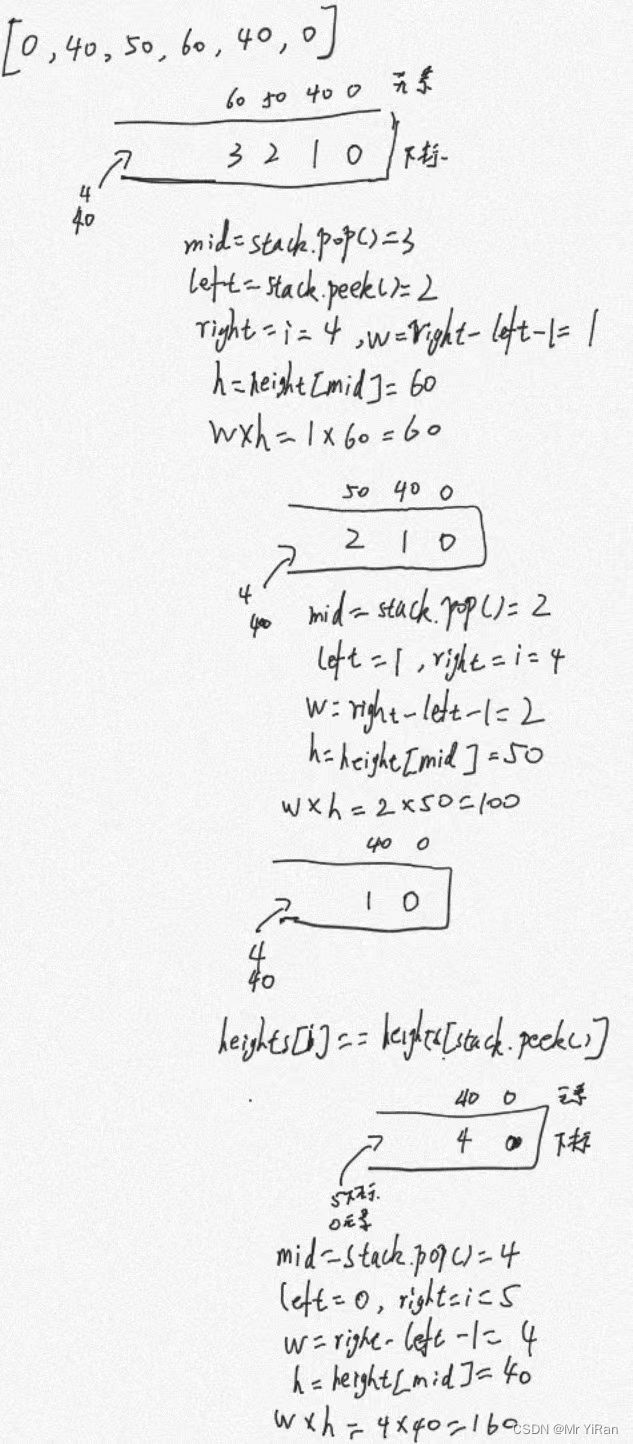 [0, 40, 50, 60, 40, 0]
60 50 40 0 元素
3 2 1 0 下标
4
40
mid=stack.pop()=3
left=stack.peek()=2
right=i=4, w=right-left-1=1
h=height[mid]=60
w×h=1×60=60
50 40 0
2 1 0
4
40
mid=stack.pop()=2
left=1, right=i=4
w=right-left-1=2
h=height[mid]=50
w×h=2×50=100
40 0
1 0
4
40
heights[i]==heights[stack.peek()]
40 0 元素
4 0 下标
5下标
0元素
mid=stack.pop()=4
left=0, right=i=5
w=right-left-1=4
h=height[mid]=40
w×h=4×40=160
CSDN @Mr YiRan